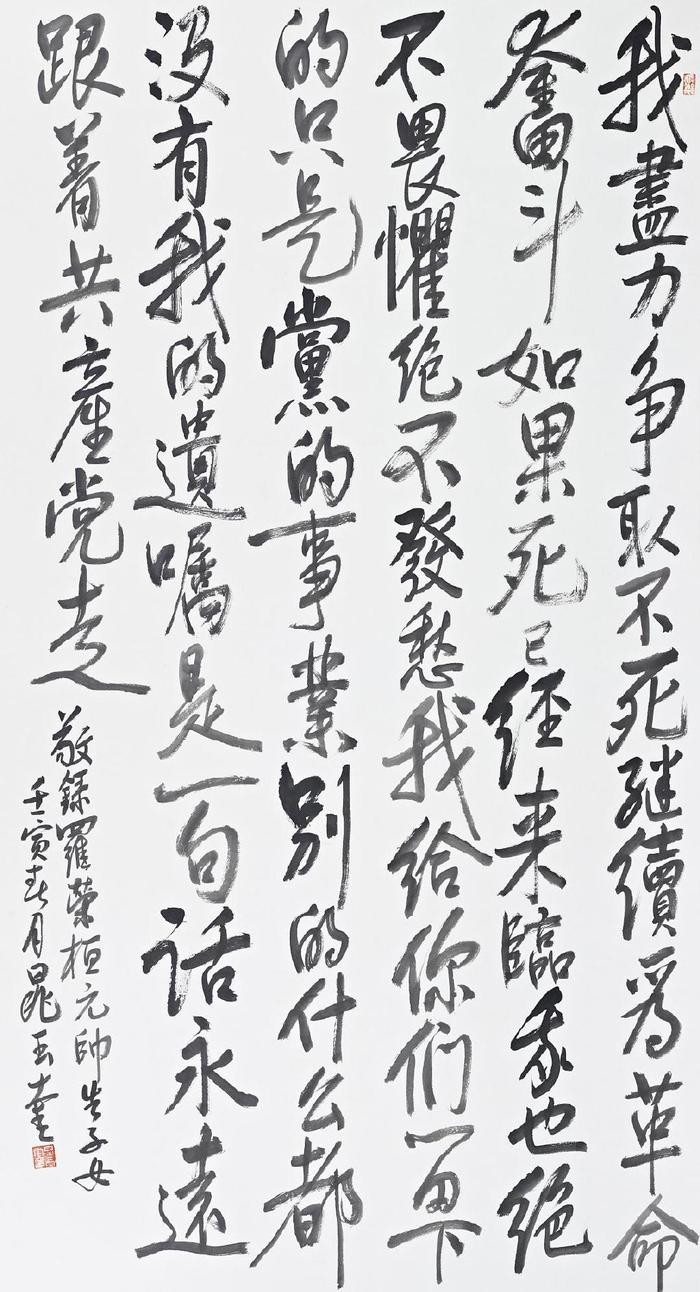 我盡力争取不死继續爲革命
奮斗如果死已經来臨我也绝
不畏懼绝不發愁我给你们留下
的只是黨的事業别的什么都
没有我的遺囑是一句话永遠
跟着共產党走
敬録羅榮桓元帥告子女
壬寅春月晁玉奎